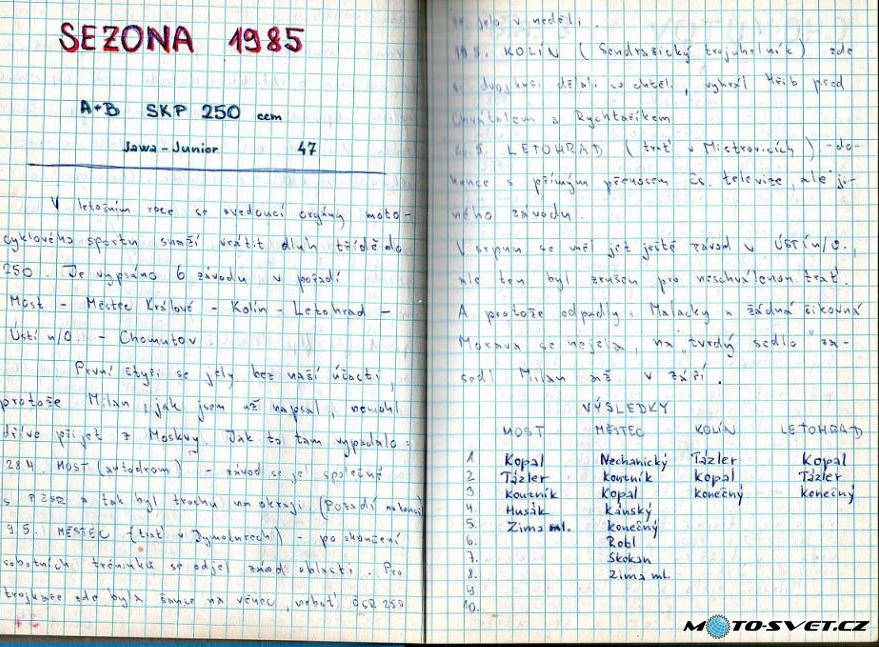 SEZONA 1985
A+B SKP 250 ccm
Jawa-Junior 47
V letošním roce se svedoucí orgány moto-
cyklového sportu snaží vrátit dluh třídě do
250. Je vypsáno 6 závodu v pořadí
Most - Městec Králové - Kolín - Letohrad -
Ústí n/O. - Chomutov.
První čtyři se jely bez naší účasti,
protože Milan, jak jsem už napsal, nemohl
dříve přijet z Moskvy. Jak to tam vypadalo:
28.4. MOST (autodrom) - závod se jel společně
s PZSR a tak byl trochu na okraji (Pořadí nakonci)
9.5. MĚSTEC (trať v Dymokurech) - po skončení
sobotních tréninků se odjel závod oblastí. Pro
trojkaře zde byla šance na věnec, neboť ČSR 250
jelo v neděli.
KOLÍN (Sendražický trojuhelník) zde
si dvojkaři dělali co chtěli, vyhrál Hřib před
Chvátalem a Rychtaříkem
.5. LETOHRAD (trať v Mistrovicích) - do-
konce s přímým přenosem čs. televize, ale ji-
ného závodu.
V srpnu se měl jet ještě závod v ÚSTÍ n/O.,
ale ten byl zrušen pro neschválenou trať.
A protože odpadly i Malacky a žádná šikovná
Morava se nejela, na "tvrdý sedlo" za-
sedl Milan až v září.
VÝSLEDKY
MOST MĚSTEC KOLÍN LETOHRAD
1 Kopal Nechanický Tázler Kopal
2 Tázler Koutník Kopal Tázler
3 Koutník Kopal Konečný Konečný
4. Husák Kánský
5. Zima ml. Konečný
6. Robl
7. Skokan
8. Zima ml.
9
10.
MOTO-SVET.CZ